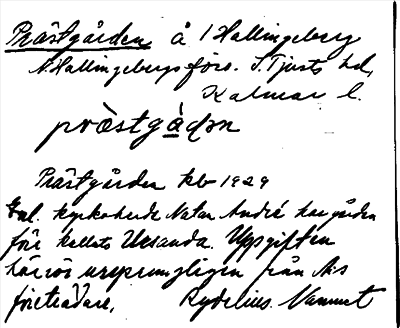 Prästgården å 1 Hallingeberg
Hallingebergs förs. S. Tjusts hd,
Kalmar l.
pròstgà̱dən
Prästgården kb 1929
Enl. kyrkoherde Natan André har gården
förr kallats Uvsanda. Uppgiften
härrör ursprungligen från A:s
företrädare, Rydelius. Namnet